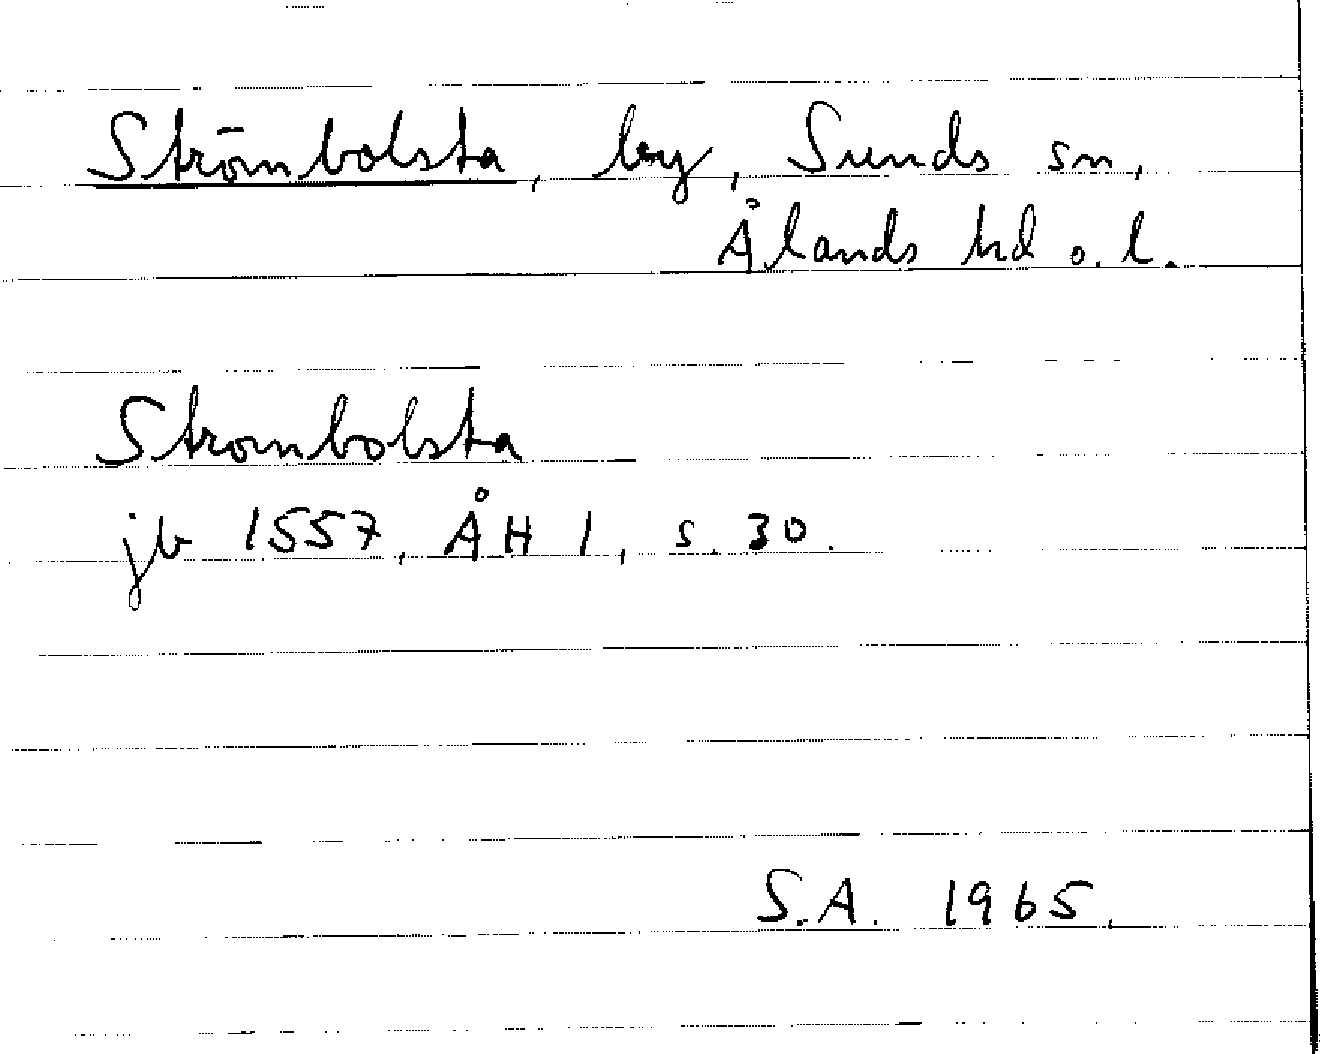 Strömbolsta, by, Sunds sn,
Ålands hd o. l.
Strombolsta
jb 1557, ÅH 1, s. 30.
S.A. 1965.